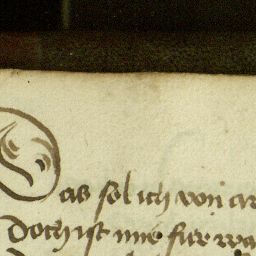 Das sol ich von ar
Doch ist mir fur wa